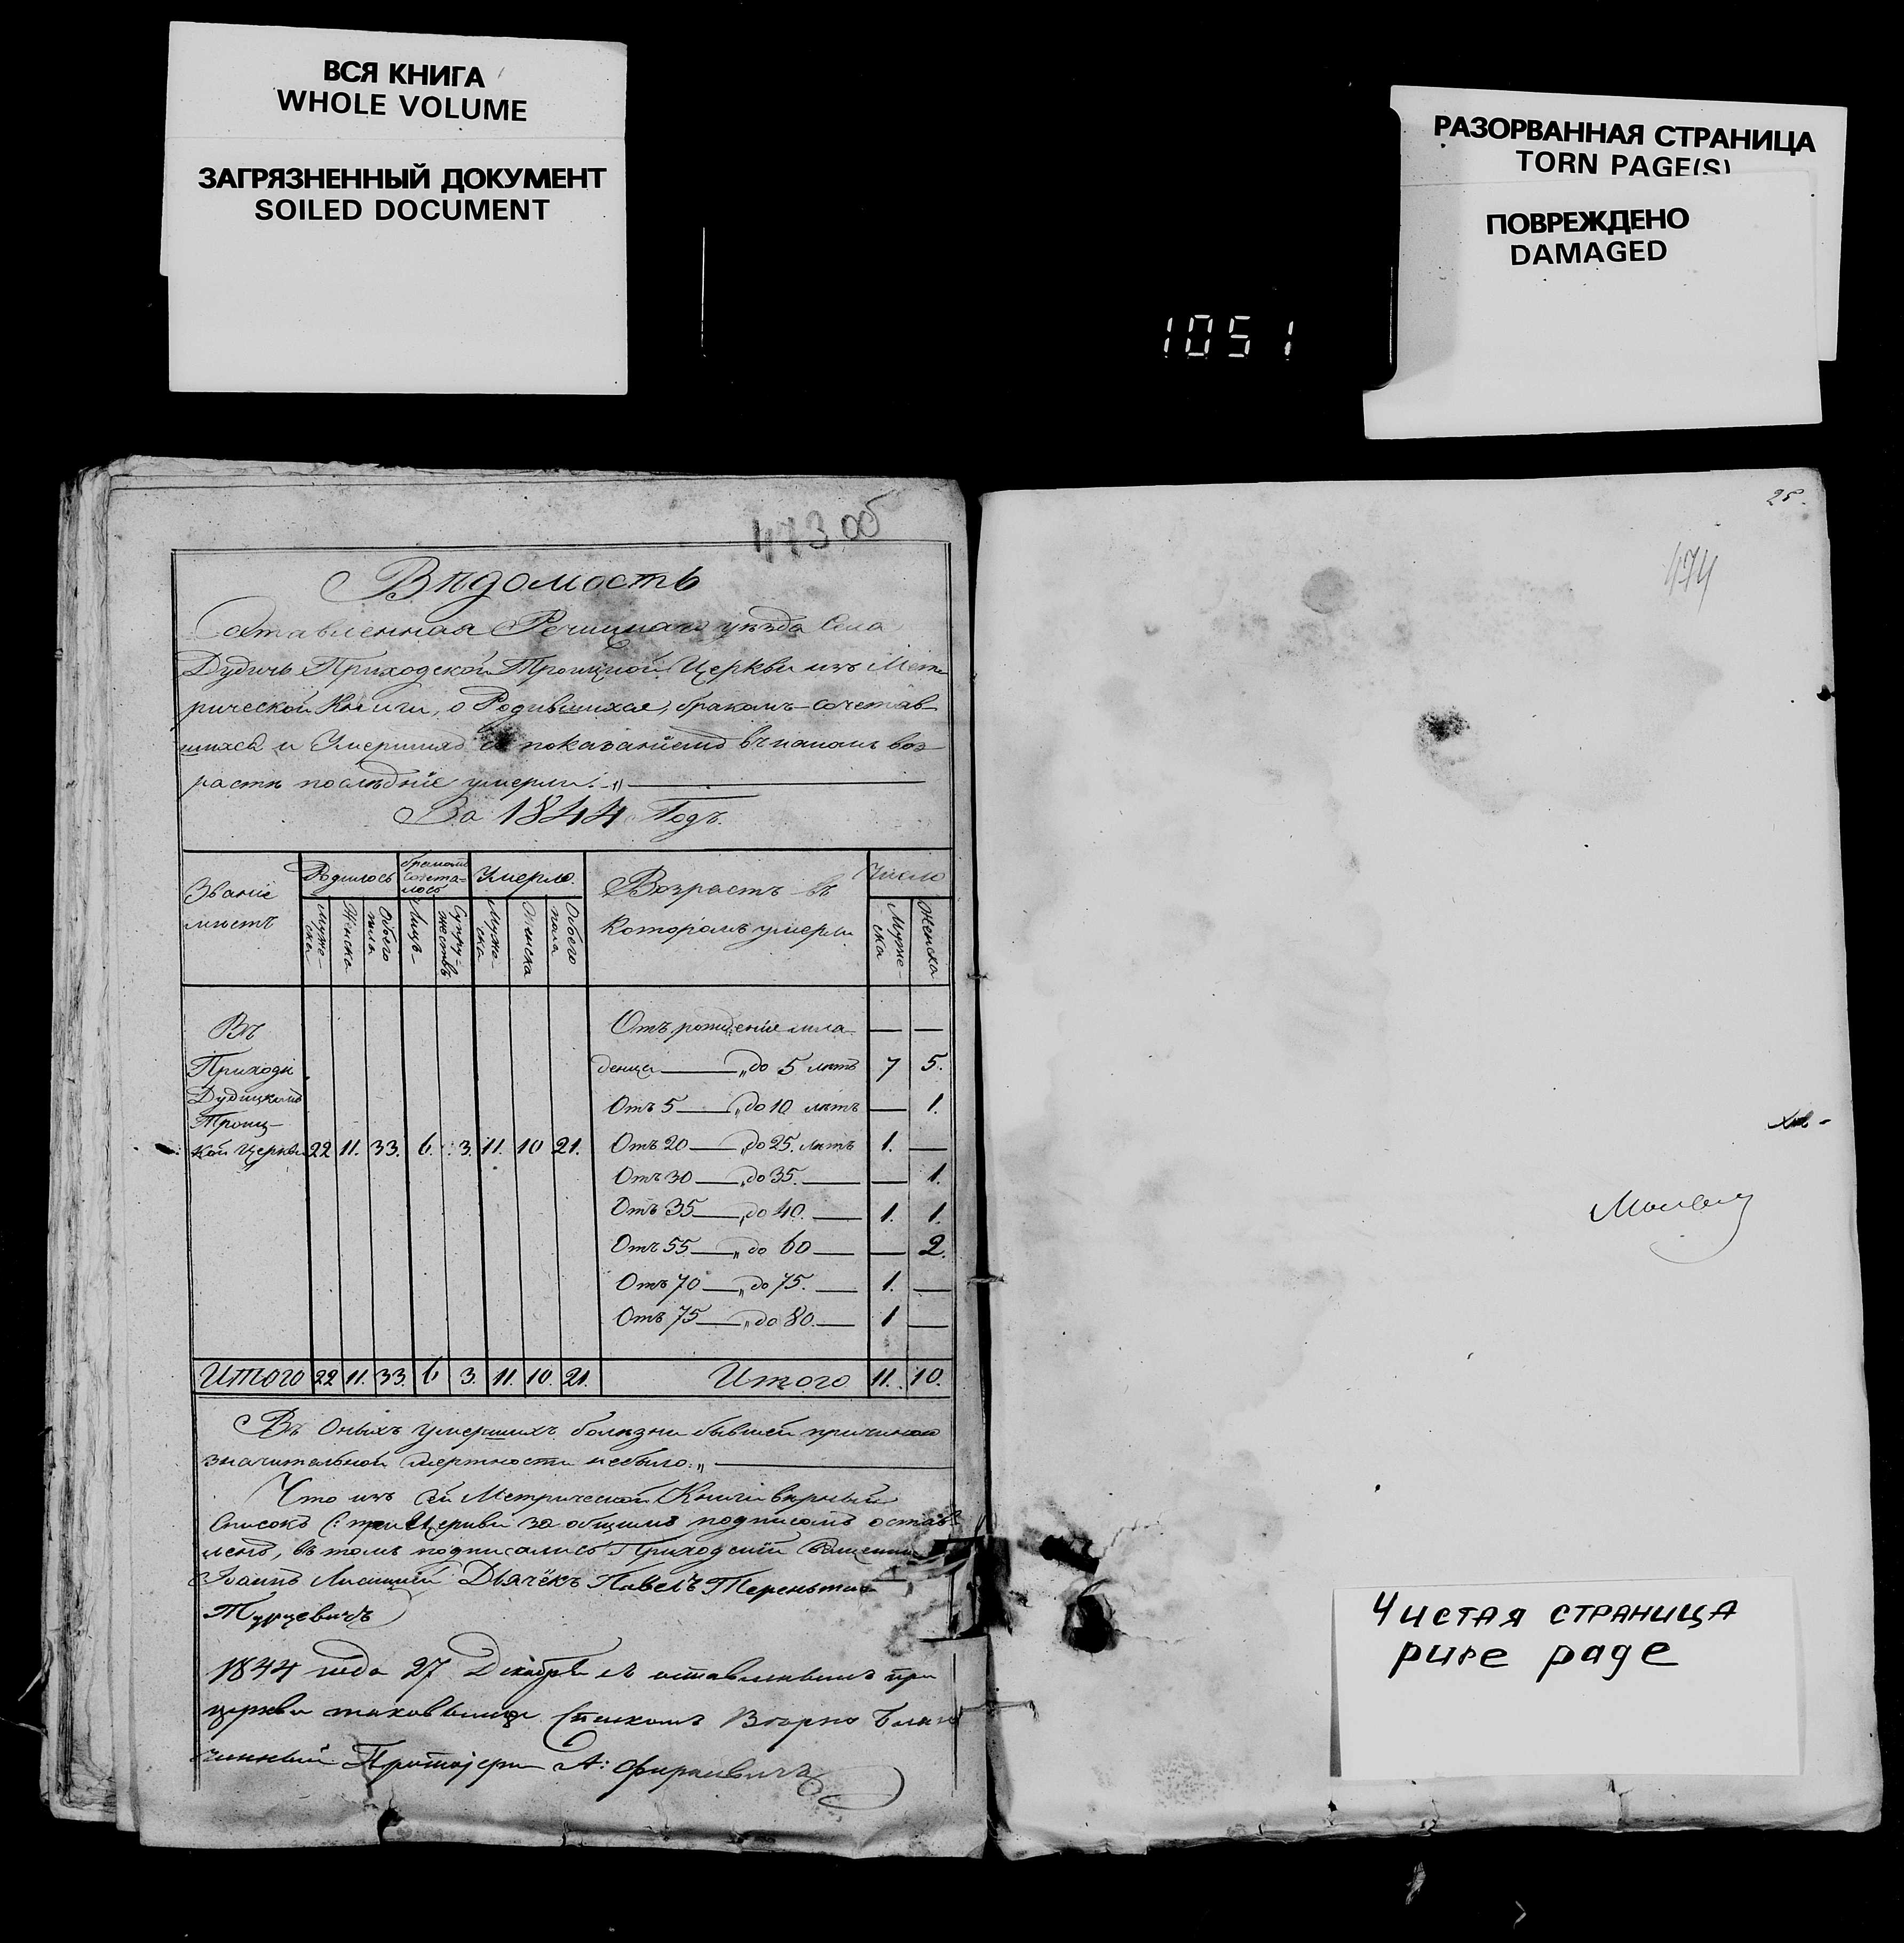 ВСЯ КНИГА
WHOLE VOLUME
ЗАГРЯЗНЕННЫЙ ДОКУМЕНТ
SOILED DOCUMENT
РАЗОРВАННАЯ СТРАНИЦА
TORN PAGE(S)
ПОВРЕЖДЕНО
DAMAGED
1051
473 об
Вѣдомость
Составленная Речицкаго уѣзда Села
Дудичь Приходской Троицкой Церкви изъ Мет
рической Книги, о Родившихся, бракомъ сочетав
шихся и Умершихъ съ показаніемъ въ какомъ воз
растѣ послѣдніе умерли.
За 1844 Годъ.
Званіе мѣстъ
Родилось
бракомъ сочета-лось
Умерло.
Возрастъ въ которомъ умерли
Число
Муже-ска
Женска
Обоего пола
Лицъ
Супру-жествъ
Муже-ска
Женска
Обоего пола
Муже-ска
Женска
Въ
Отъ рожденія мла — —
Приходѣ
денца — „до 5 лѣтъ 7 5.
Дудицкой
Отъ 5 — „до 10 лѣтъ — 1.
Троиц-
кой Церкви 22 11. 33. 6. 3. 11. 10 21. Отъ 20 — „до 25. лѣтъ 1. —
Отъ 30 — „до 35. — — 1.
Отъ 35 — „до 40. — 1. 1.
Отъ 55 — „до 60 — — 2.
Отъ 70 — „до 75. — 1. —
Отъ 75 — „до 80. — 1 —
Итого 22 11. 33. 6 3. 11. 10. 21. Итого 11. 10.
Въ Оныхъ умершихъ болѣзни бывшей причиною
значительной смертности небыло.
Что изъ сей Метрической Книги вѣрный
Списокъ при Церкви за общимъ подписомъ остав
ленъ, въ томъ подписались Приходскій Священник
Іоаннъ Дьячёкъ Павелъ Терентіев
Турцевичъ
1844 года 27 Декабря съ оставленнымъ при
церкви таковымже Спискомъ Вѣрно Благо
чинный Протоіерей А:
25.
474
Чистая страница
pure page